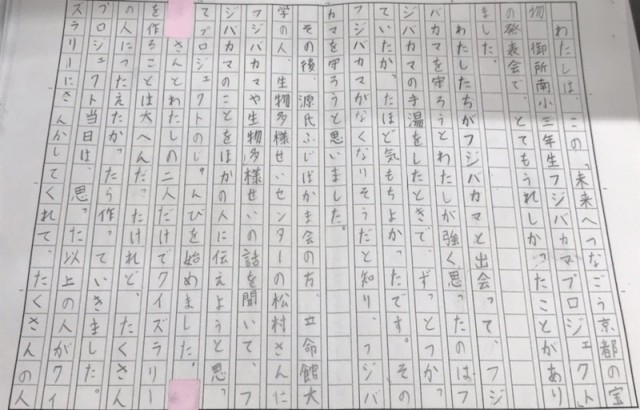 わたしは、この「未来へつなごう京都の宝
物 御所南小三年生フジバカマプロジェクト」
の発表会で、とてもうれしかったことがあり
ました。
わたしたちがフジバカマと出会って、フジ
バカマを守ろうとわたしが強く思ったのはフ
ジバカマの手湯をしたときで、ずっとつかっ
ていたかったほど気もちよかったです。その
フジバカマがなくなりそうだと知り、フジバ
カマを守ろうと思いました。
その後、源氏ふじばかま会の方、立命館大
学の人、生物多様せいセンターの松村さんに
フジバカマや生物多様せいの話を聞いて、フ
ジバカマのことをほかの人に伝えようと思っ
てプロジェクトのじゅんびを始めました。
さんとわたしの二人だけでクイズラリー
を作ることは大へんだったけれど、たくさん
の人につたえたかったから作っていきました。
プロジェクト当日は、思った以上の人がクイ
ズラリーにさんかしてくれて、たくさんの人